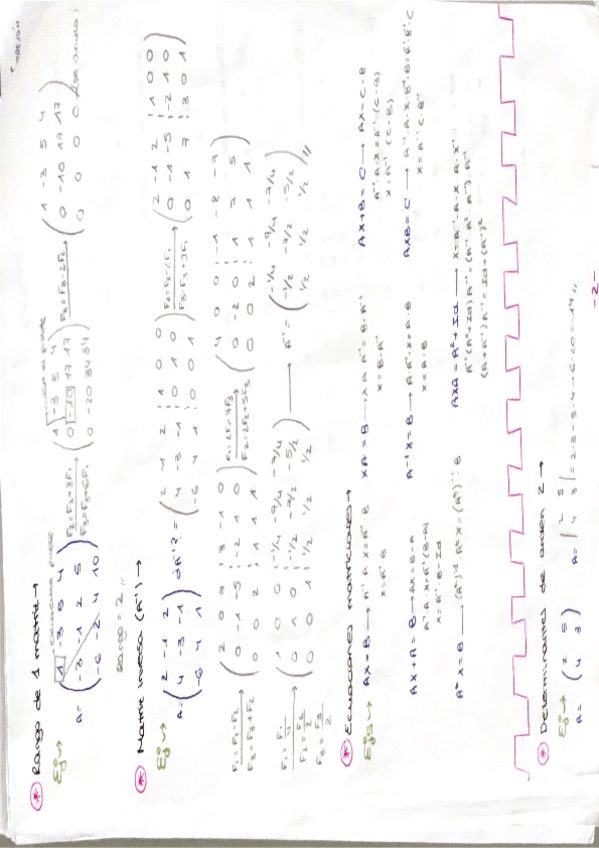 * Rango de 1 matriz →
Ejm→
A = ( 1 -3 5 4 / -3 -1 2 5 / -6 -2 4 10 ) F2=F2+3F1 F3=F3+6F1 → ( 1 -3 5 4 / 0 -10 17 17 / 0 -20 34 34 ) F3=F3-2F2 → ( 1 -3 5 4 / 0 -10 17 17 / 0 0 0 0 )
Rango = 2 //
* Matriz inversa (A⁻¹) →
Ejm→
A = ( 2 -1 2 / 4 -3 -1 / -6 4 1 ) ¿A⁻¹? = ( 2 -1 2 ⋮ 1 0 0 / 4 -3 -1 ⋮ 0 1 0 / -6 4 1 ⋮ 0 0 1 ) F2=F2-2F1 F3=F3+3F1 → ( 2 -1 2 ⋮ 1 0 0 / 0 -1 -5 ⋮ -2 1 0 / 0 1 7 ⋮ 3 0 1 )
F1=F1-F2 F3=F3+F2 → ( 2 0 7 ⋮ 3 -1 0 / 0 -1 -5 ⋮ -2 1 0 / 0 0 2 ⋮ 1 1 1 ) F1=2F1-7F3 F2=2F2+5F3 → ( 4 0 0 ⋮ -1 -9 -7 / 0 -2 0 ⋮ 1 7 5 / 0 0 2 ⋮ 1 1 1 )
F1=F1/4 F2=F2/2 F3=F3/2 → ( 1 0 0 ⋮ -1/4 -9/4 -7/4 / 0 1 0 ⋮ -1/2 -7/2 -5/2 / 0 0 1 ⋮ 1/2 1/2 1/2 ) → A⁻¹ = ( -1/4 -9/4 -7/4 / -1/2 -7/2 -5/2 / 1/2 1/2 1/2 ) //
* Ecuaciones matriciales →
Ejm→
AX = B → A⁻¹·A·X = A⁻¹·B
X = A⁻¹·B
XA = B → X·A·A⁻¹ = B·A⁻¹
X = B·A⁻¹
AX+B = C → AX = C-B
A⁻¹·A·X = A⁻¹·(C-B)
X = A⁻¹·(C-B)
AX+A = B → AX = B-A
A⁻¹·A·X = A⁻¹(B-A)
X = A⁻¹·B-Id
A⁻¹X = B → A·A⁻¹·X = A·B
X = A·B
AXB = C → A⁻¹·A·X·B·B⁻¹
X = A⁻¹·C·B⁻¹
A²X = B → (A²)⁻¹·A²X = (A²)⁻¹·B
AXA = A²+Id →
A⁻¹(A²+Id)A⁻¹ =
(A+A⁻¹)A⁻¹ = Id+(A⁻¹)²
* Determinantes de orden 2 →
Ejm→
A = ( 2 5 / 4 3 ) A = | 2 5 / 4 3 | = 2·3-5·4 → 6-20 = -14 //
-2-